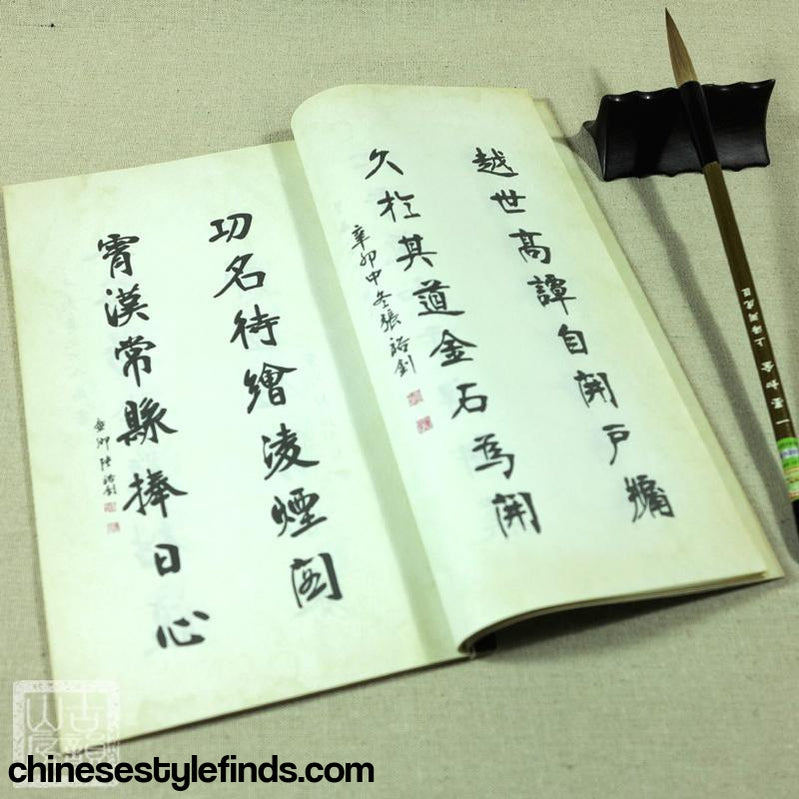 越世高譚自開戶牖
久於其道金石為開
辛卯中冬張裕釗
功名待繪凌煙閣
霄漢常縣捧日心
張裕釗
一
上海周虎臣
chinesestylefinds.com